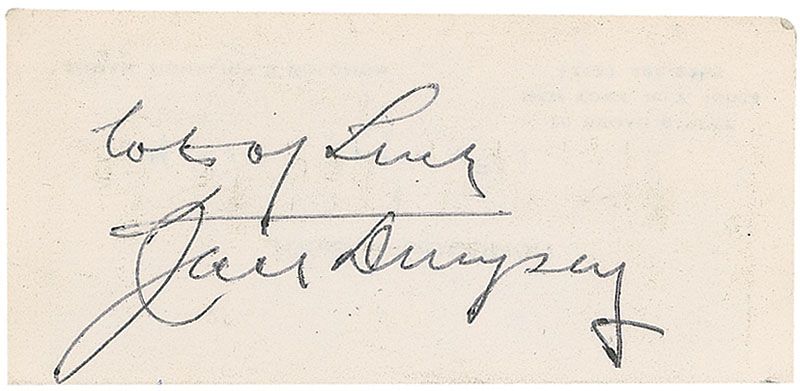 Lots of Luck
Jack Dempsey